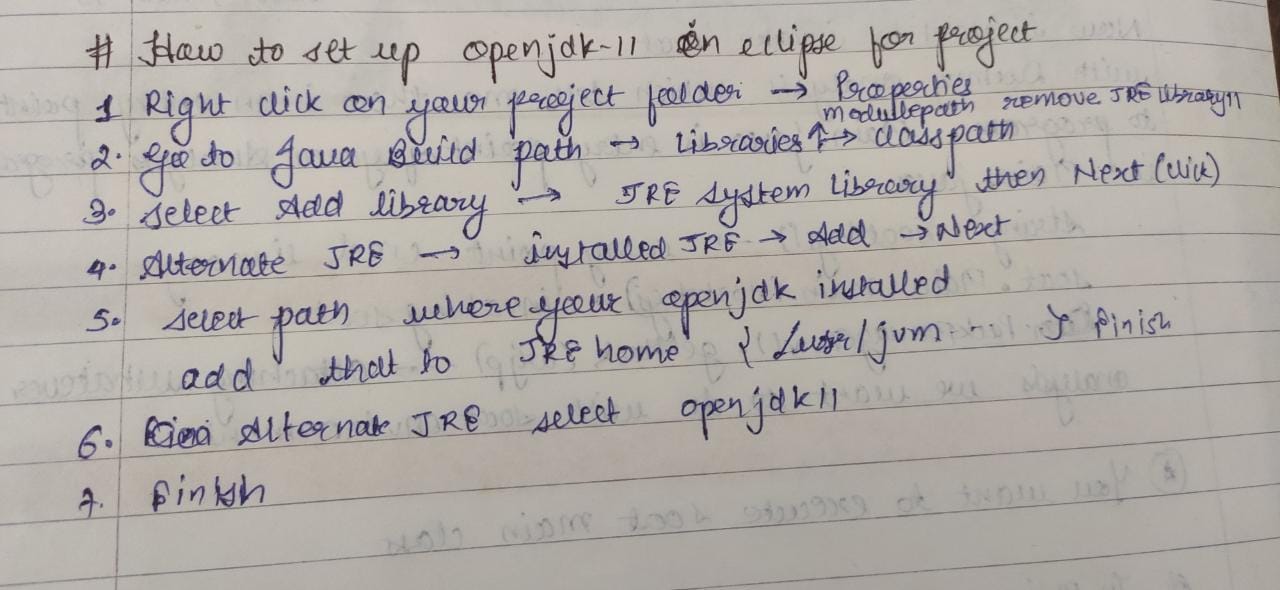 # How to set up openjdk-11 in eclipse for project
1 Right click on your project folder → Properties
modulepath remove JRE library 11
2. Go to Java Build path → Libraries ↑→ classpath
3. select Add library → JRE system library then Next (click)
4. Alternate JRE → installed JRE → Add → Next
5. select path where your openjdk installed
add that to JRE home { /jvm - - } finish
6. Alternate JRE select openjdk11
7. finish